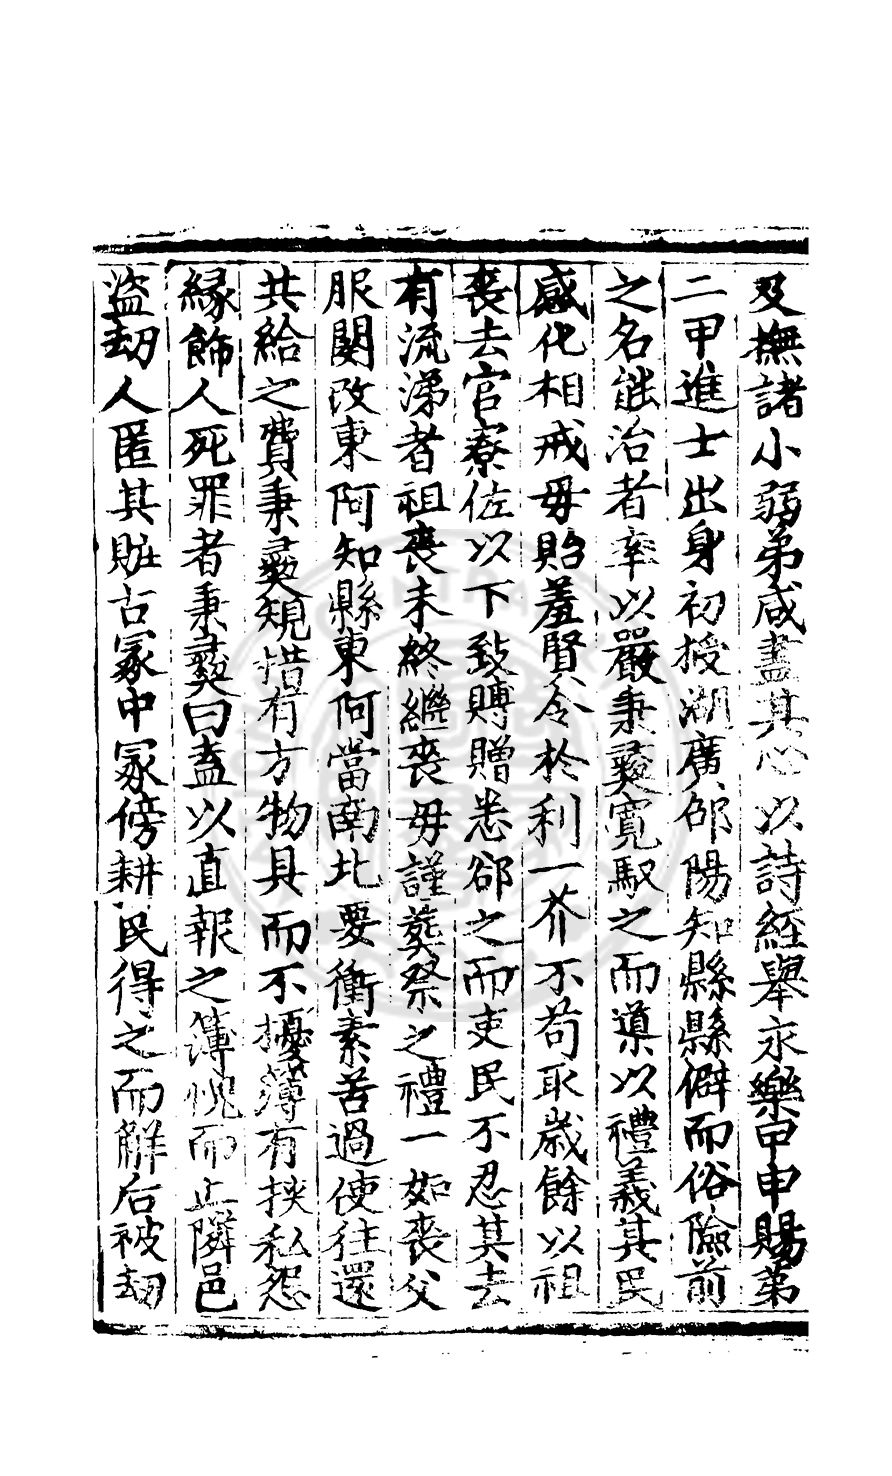 及撫諸小弱弟咸盡其心以詩經舉永樂甲申賜第
二甲進士出身初授湖廣邵陽知縣縣僻而俗險前
之名能治者率以嚴秉彞寛馭之而導以禮義其民
感化相戒毋貽羞賢令於利一芥不苟取嵗餘以祖
喪去官寮佐以下致賻贈悉郤之而吏民不忍其去
有流涕者祖喪未終繼喪毋謹葬祭之禮一如喪父
服闋改東阿知縣東阿當南北要衝素苦過使往還
共給之費秉彞規措有方物具而不擾簿有挟私怨
緣飾人死罪者秉彞曰盍以直報之簿愧而止隣邑
盜刼人匿其賍古冢中冢傍耕民得之而觧后被刼